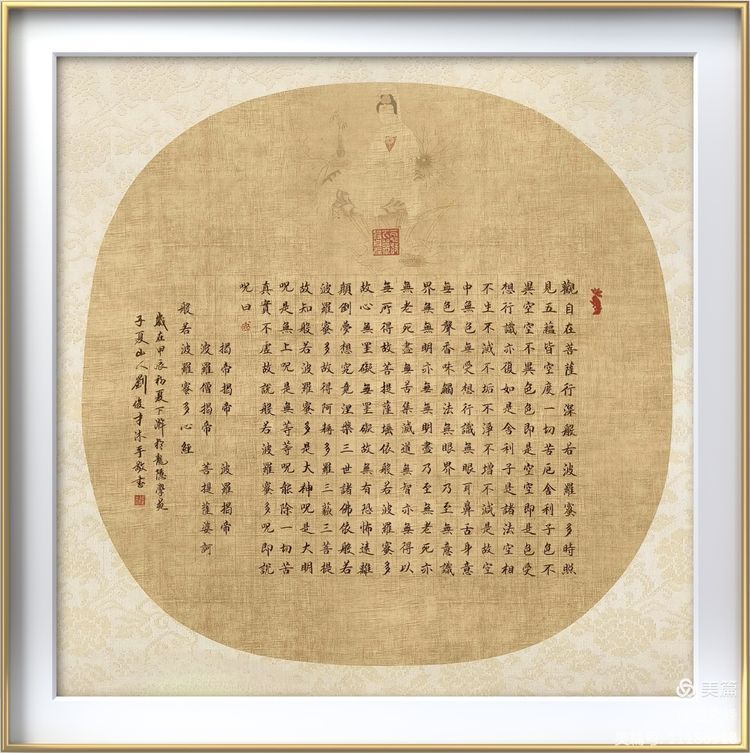 觀自在菩薩行深般若波羅蜜多時照
見五蘊皆空度一切苦厄舍利子色不
異空空不異色色即是空空即是色受
想行識亦復如是舍利子是諸法空相
不生不滅不垢不淨不增不減是故空
中無色無受想行識無眼耳鼻舌身意
無色聲香味觸法無眼界乃至無意識
界無無明亦無無明盡乃至無老死亦
無老死盡無苦集滅道無智亦無得以
無所得故菩提薩埵依般若波羅蜜多
故心無罣礙無罣礙故無有恐怖遠離
顛倒夢想究竟涅槃三世諸佛依般若
波羅蜜多故得阿耨多羅三藐三菩提
故知般若波羅蜜多是大神呪是大明
呪是無上呪是無等等呪能除一切苦
真實不虛故說般若波羅蜜多呪即說
呪曰
揭帝揭帝 波羅揭帝
波羅僧揭帝 菩提薩婆訶
般若波羅蜜多心經
歲在甲辰初夏下澣於龍德學苑
子夏山人劉俊才沐手敬書
美篇